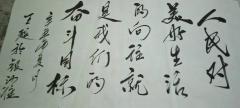 人民对
美好生活
的向往就
是我们的
奋斗目标